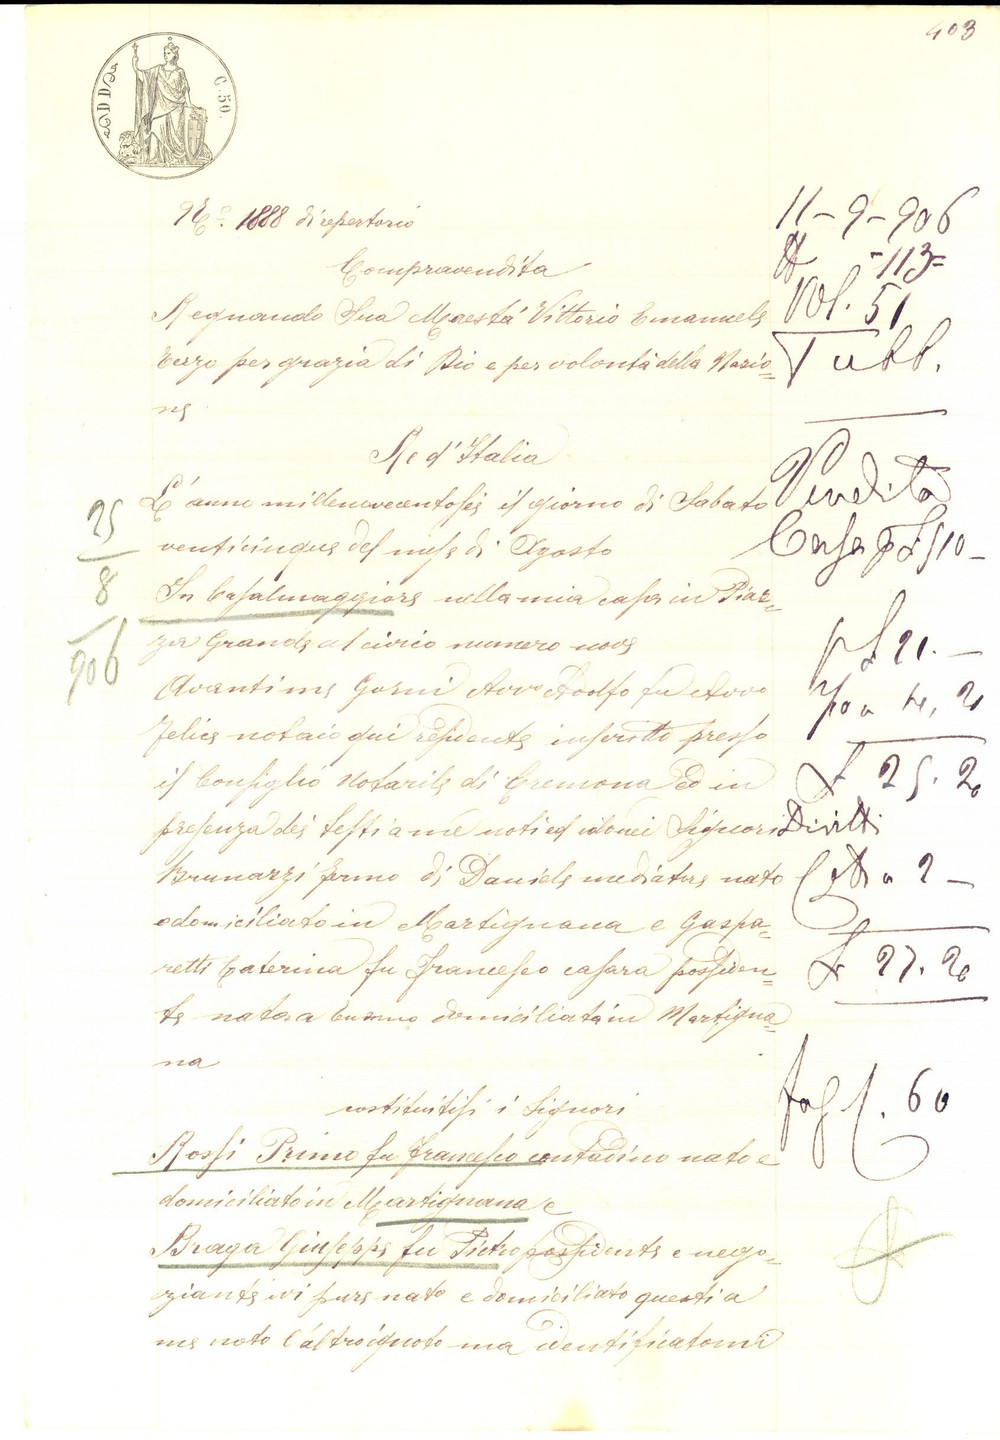 403
C. 50.
N.o 1888 di repertorio
Compravendita
Regnando Sua Maestà Vittorio Emanuele
Terzo per grazia di Dio e per volontà della Nazio=
ne
Re d'Italia
L'anno millenovecentosei il giorno di Sabato
venticinque del mese di Agosto
In Casalmaggiore nella mia casa in Piaz=
za Grande al civico numero nove
Avanti me Gorni Avvo Adolfo fu Avvo
Felice notaio qui residente inscritto presso
il Consiglio Notarile di Cremona ed in
presenza dei testi a me noti ed idonei Signori
Brunazzi Fermo di Daniele mediatore nato
e domiciliato in Martignana e Gaspa=
retti Caterina fu Francesco casara possiden=
te nata a domiciliata in Martigna=
na
costituitisi i Signori
Rossi Primo fu Francesco contadino nato e
domiciliato in Martignana e
Braga Giuseppe fu Pietro possidente e nego=
ziante ivi pure nato e domiciliato questi a
me noto l'altro ignoto ma identificatomi
25
8
906
11-9-906
N -113=
Vol. 51
Pubb.
Vendita
Casa p £ 510-
p £ 21.-
4,20
£ 25.20
Diritti
2-
£ 27.20
fog 1.60